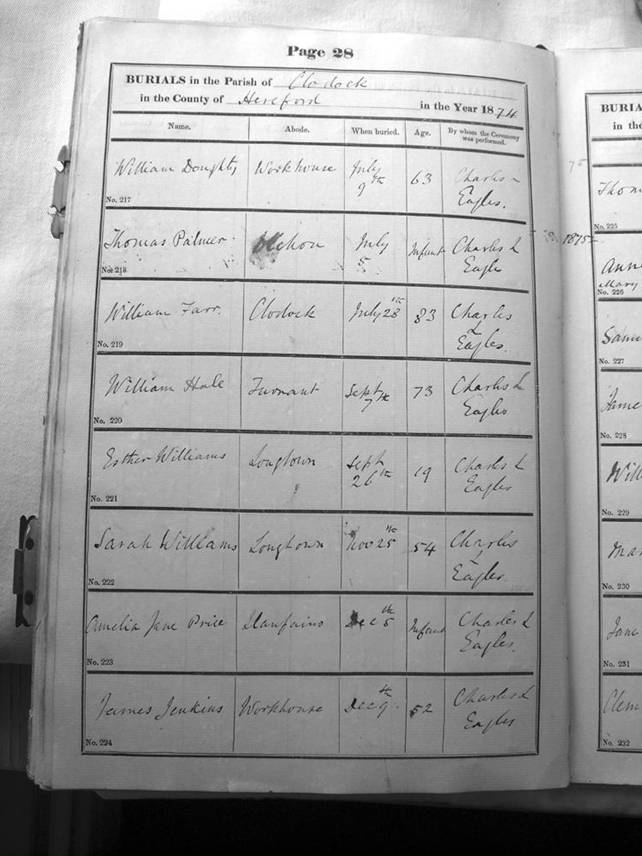 Page 28
BURIALS in the Parish of Clodock
in the County of Hereford in the Year 1874
Name. Abode. When buried. Age. By whom the Ceremony was performed.
William Doughty Workhouse July 9th 63 Charles L Eagles.
No. 217
Thomas Palmer July 5 Infant Charles L Eagle
No. 218
William Farr. Clodock July 28th 83 Charles L Eagles.
No. 219
William Hale Turnant Sept 7th 73 Charles L Eagles
No. 220
Esther Williams Longtown Sept 26th 19 Charles L Eagles
No. 221
Sarah Williams Longtown Nov 25th 54 Charles L Eagles
No. 222
Amelia Jane Price Llanfains Dec 5th Infant Charles L Eagles.
No. 223
James Jenkins Workhouse Dec 9th 52 Charles L Eagles
No. 224
BURIA
in the
1875
Thom
No. 225
Ann
Mary
No. 226
Samu
No. 227
Jame
No. 228
Will
No. 229
Mar
No. 230
Jane
No. 231
Clem
No. 232